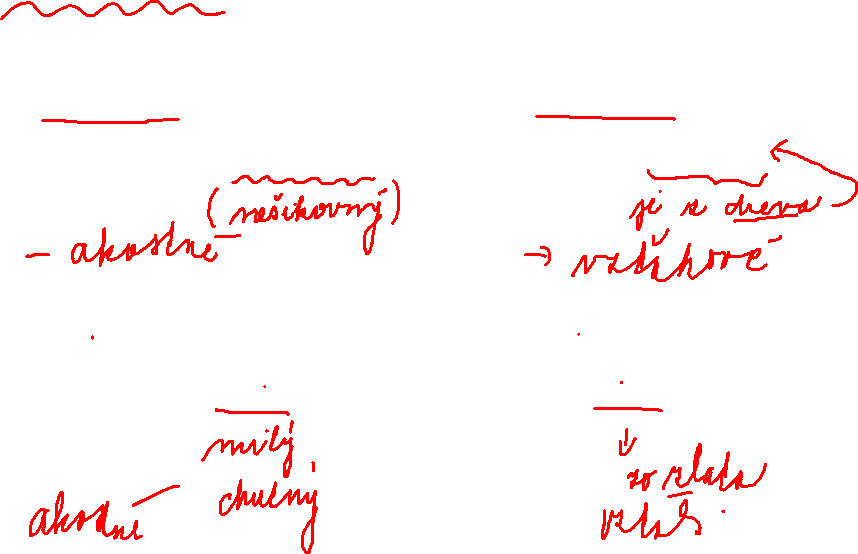 (nešikovný)
- akostné
je z dreva
→ vzťahové
milý
chutný
akostné
zo zlata